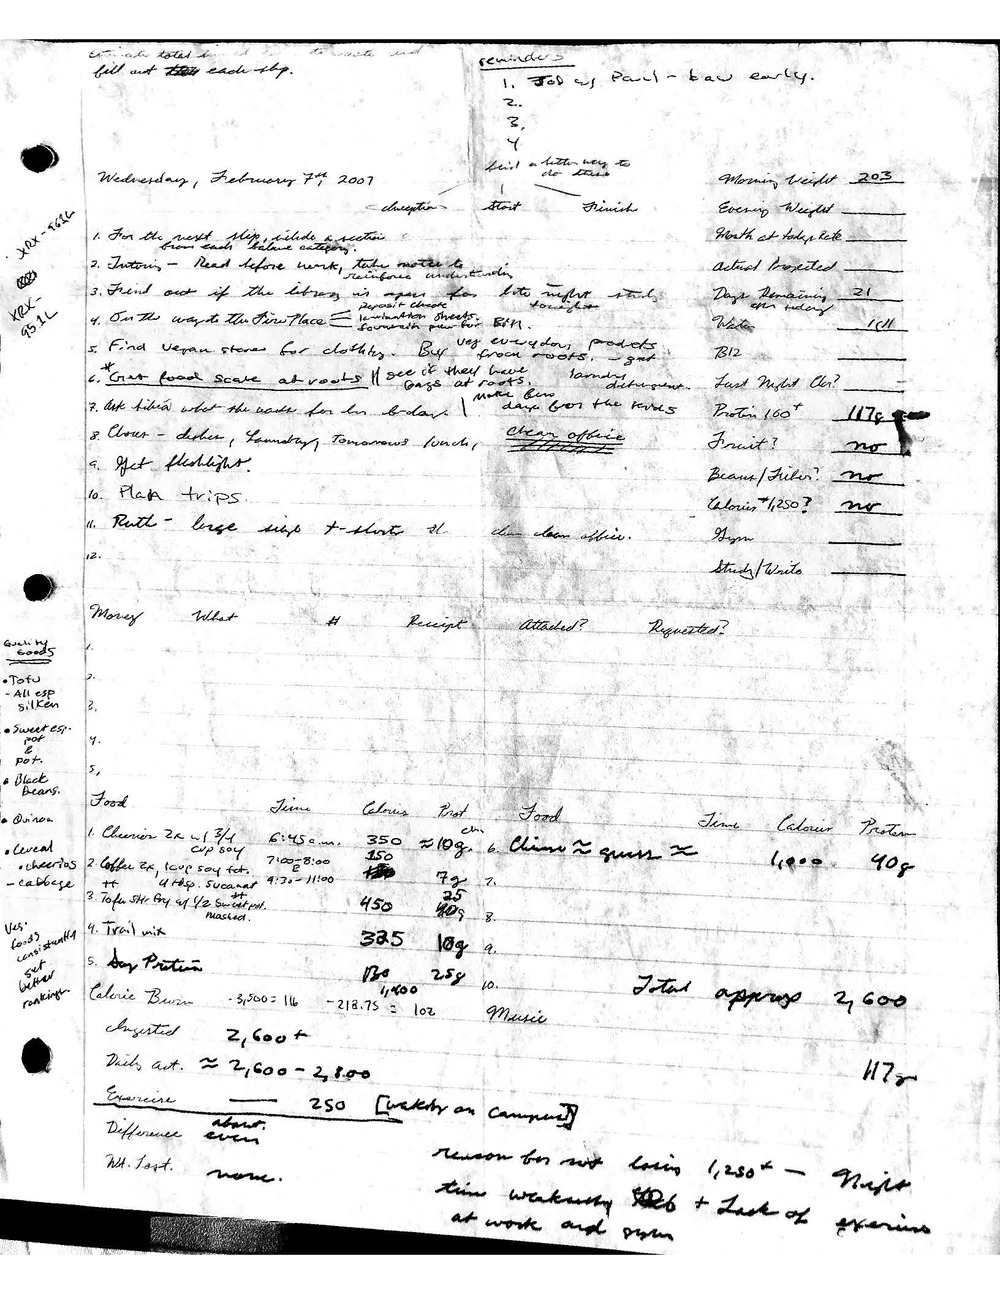 Estimate total
fill out each slip.
reminders
1. Job w/ Paul -
2.
3,
4
find a better way to
do this
Wednesday, February 7th, 2007
Start Finish
Morning Weight 203
Evening Weight
Month at todays Rate
Actual Projected
Days Remaining 21
Water
B12
Last Night Chr?
Protein 100+ 117g
Fruit? no
Beans/Fiber? no
Calories + 1,250? no
Gym
Study/Write
XRX-
XRX-
951L
1. For the next slip, include a section
from each balance category.
2. Tutoring - Read before work, take notes to
reinforce understanding
3. Find out if the library is open for late night study
tonight
4. On the way to the FirePlace
deposit check
lamination sheets.
5. Find vegan stores for clothing. Buy veg everyday products
from roots. - get
laundry
detergent.
6. *Get food scale at roots // see if they have
bags at roots.
7. Ask what she wants for her b-day
days for the
8. Chores - dishes, Laundry, Tomorrows lunch, clean office
9. Get flashlight.
10. Plan trips.
11. Ruth - large size t-shirts clean office.
12.
Money What # Receipt Attached? Requested?
1.
2.
3.
4.
5,
Quality
Goods
• Tofu
- All esp
silken
• Sweet esp.
pot
&
pot.
• Black
Beans.
• Quinoa
• Cereal
• cheerios
- cabbage
Veg.
foods
consistently
get
better
rankings.
Food Time Calories Prot
1. Cheerios 2x w/ 3/4 6:45 a.m. 350 ≈10g.
cup soy
2. Coffee 2x, 1cup soy tot. 7:00-8:00 150
& 9:30-11:00 7g
4 tbsp. sucanat
3. Tofu Stir Fry w/ 1/2 Sweet pot. 450 25
mashed.
4. Trail mix 325 10g
5. Soy Protein 130 25g
1,400
Food Time Calories Protein
6. ≈ guess ≈ 1,000 40g
7.
8.
9.
10. Total approx 2,600
117g
Calorie Burn -3,500 = 1lb -218.75 = 1oz Music
Ingested 2,600+
Daily act. ≈ 2,600 - 2,800
Exercise — 250 [walking on campus]
Difference about
even
Wt. Lost. none.
reason for not losing 1,250+ — Night
time + Lack of exercise
at work and gym